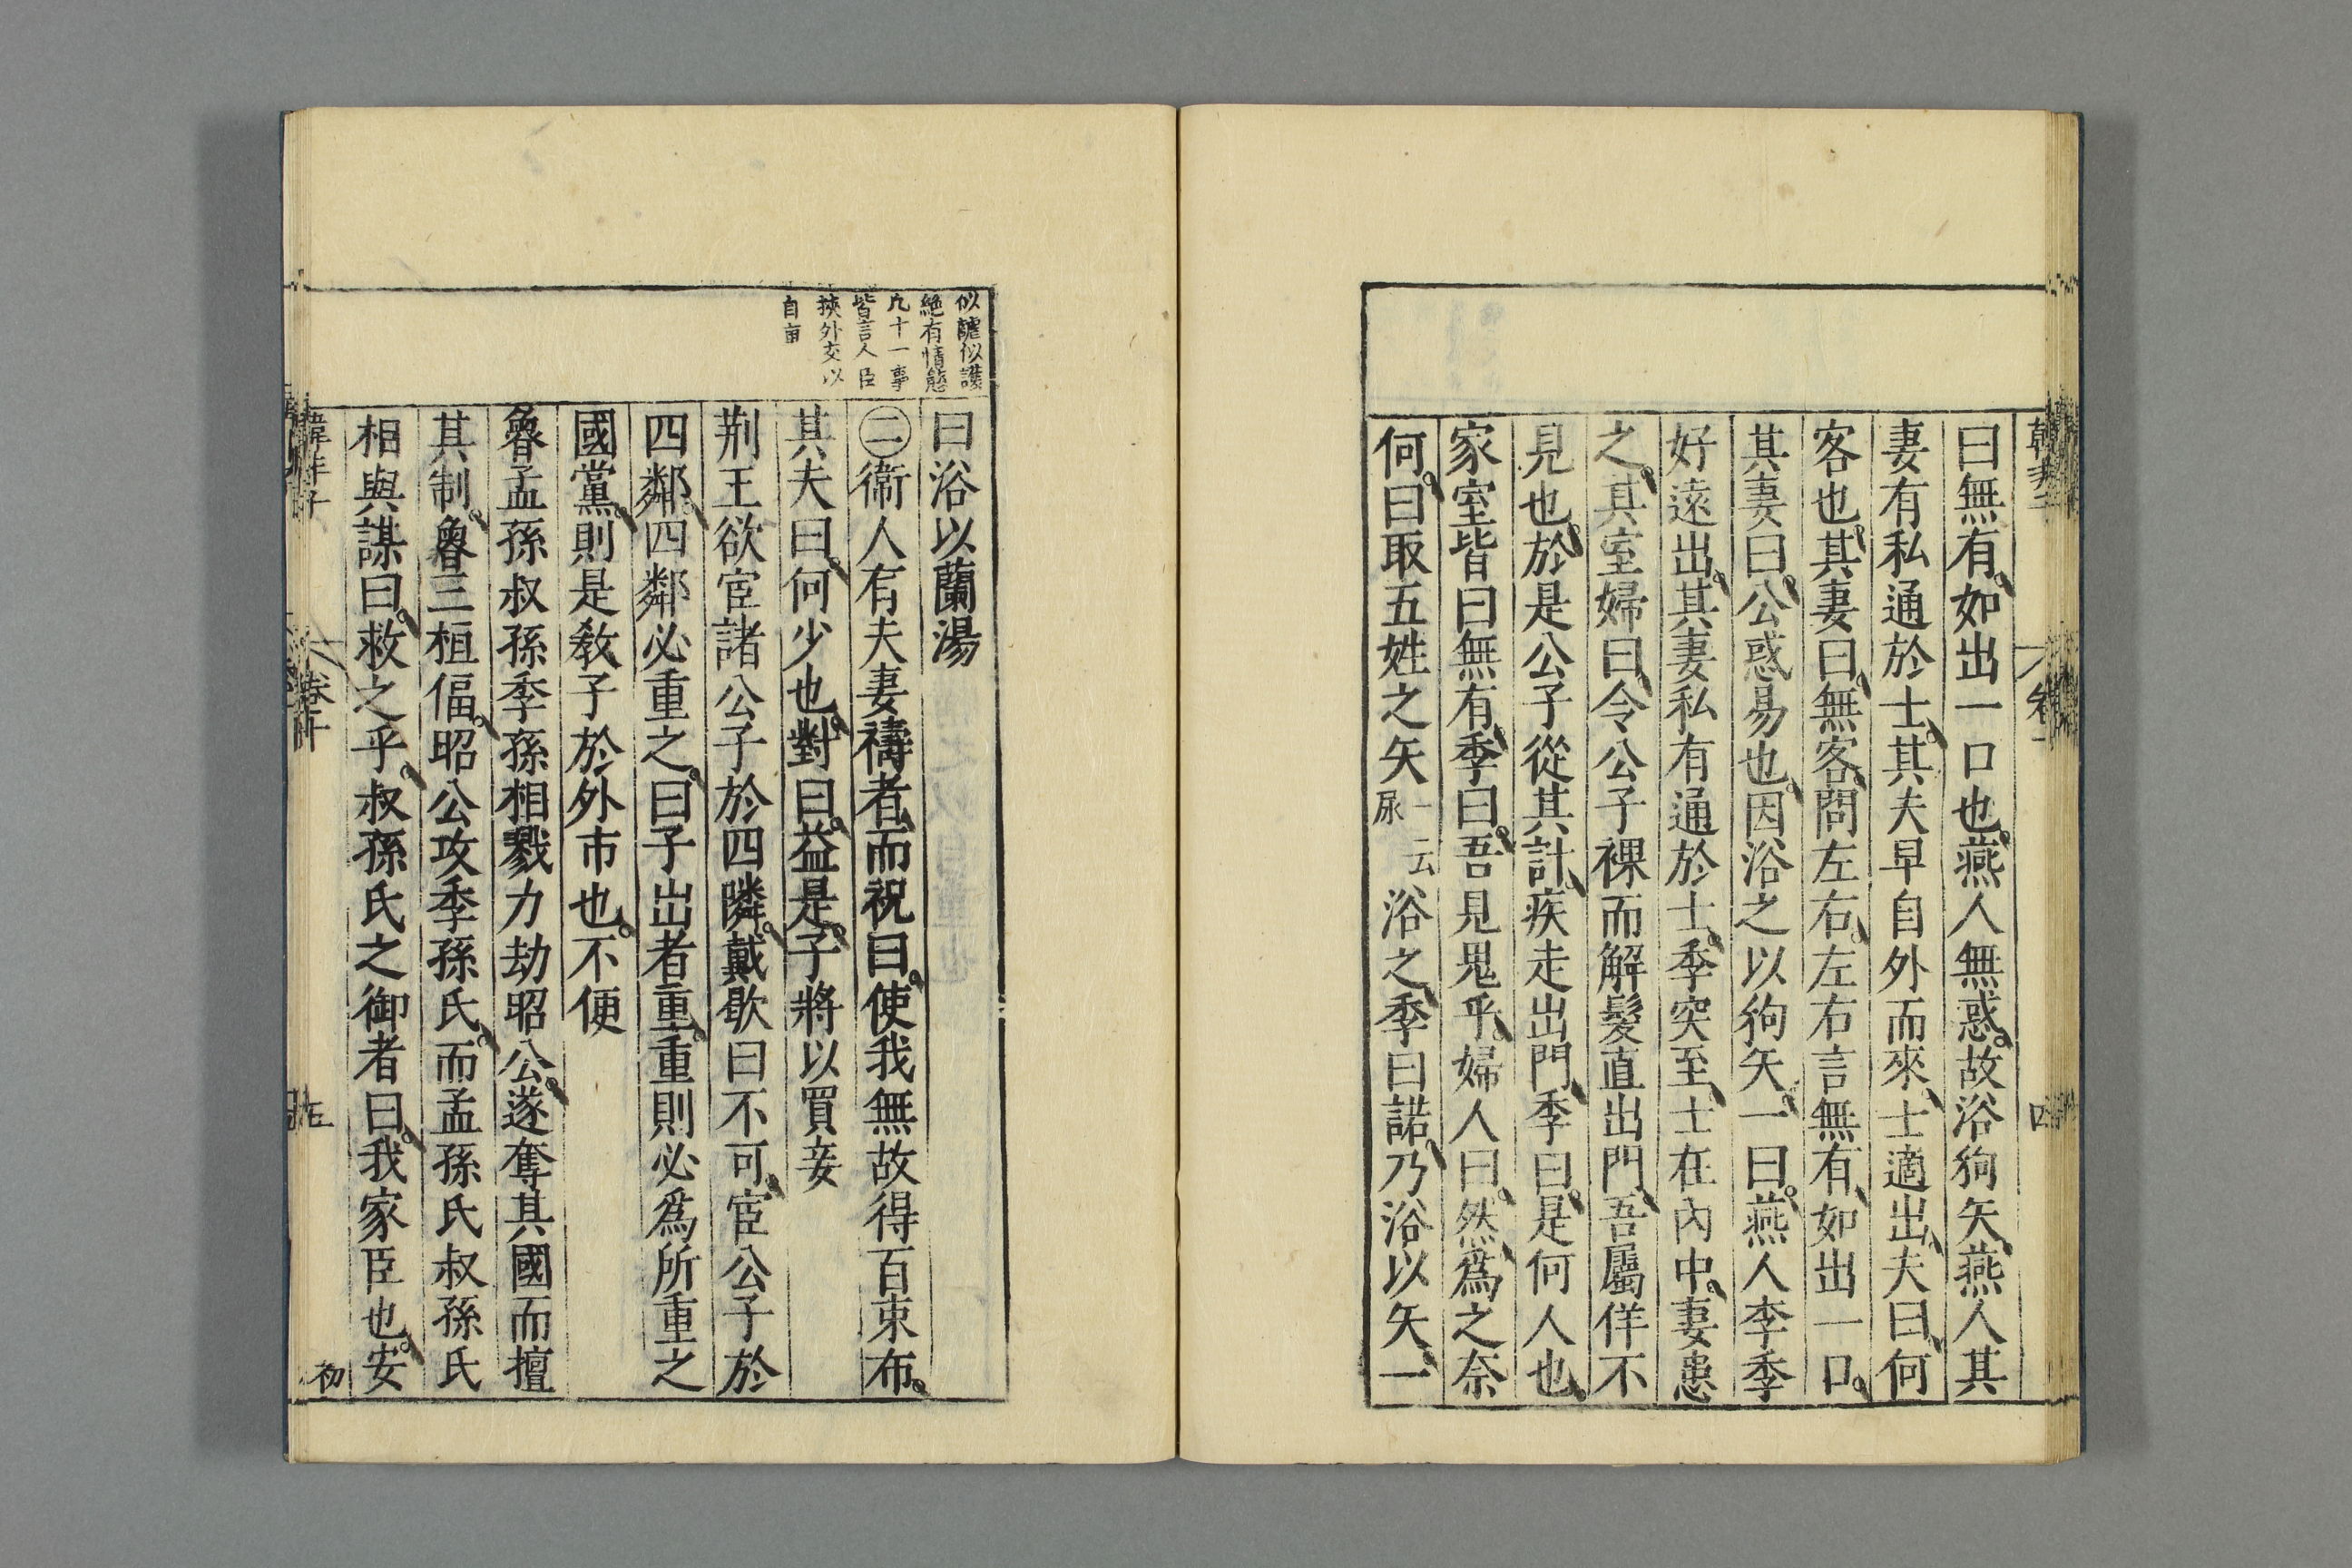 曰無有如出一口也燕人無惑故浴狗矢燕人其
妻有私通於士其夫早自外而來士適出夫曰何
客也其妻曰無客問左右左右言無有如出一口
其妻曰公惑易也因浴之以狗矢一曰燕人李季
好遠出其妻私有通於士季突至士在內中妻患
之其室婦曰令公子裸而解髮直出門吾屬佯不
見也於是公子從其計疾走出門季曰是何人也
家室皆曰無有季曰吾見鬼乎婦人曰然爲之奈
何曰取五姓之矢一云屎浴之季曰諾乃浴以矢一
似謔似護
絕有情態
凡十一事
皆言人臣
挾外交以
自重
曰浴以蘭湯
㊁衞人有夫妻禱者而祝曰使我無故得百束布
其夫曰何少也對曰益是子將以買妾
荆王欲宦諸公子於四隣戴歇曰不可宦公子於
四鄰四鄰必重之曰子出者重重則必爲所重之
國黨則是敎子於外市也不便
魯孟孫叔孫季孫相戮力劫昭公遂奪其國而擅
其制魯三桓偪昭公攻季孫氏而孟孫氏叔孫氏
相與謀曰救之乎叔孫氏之御者曰我家臣也安
初